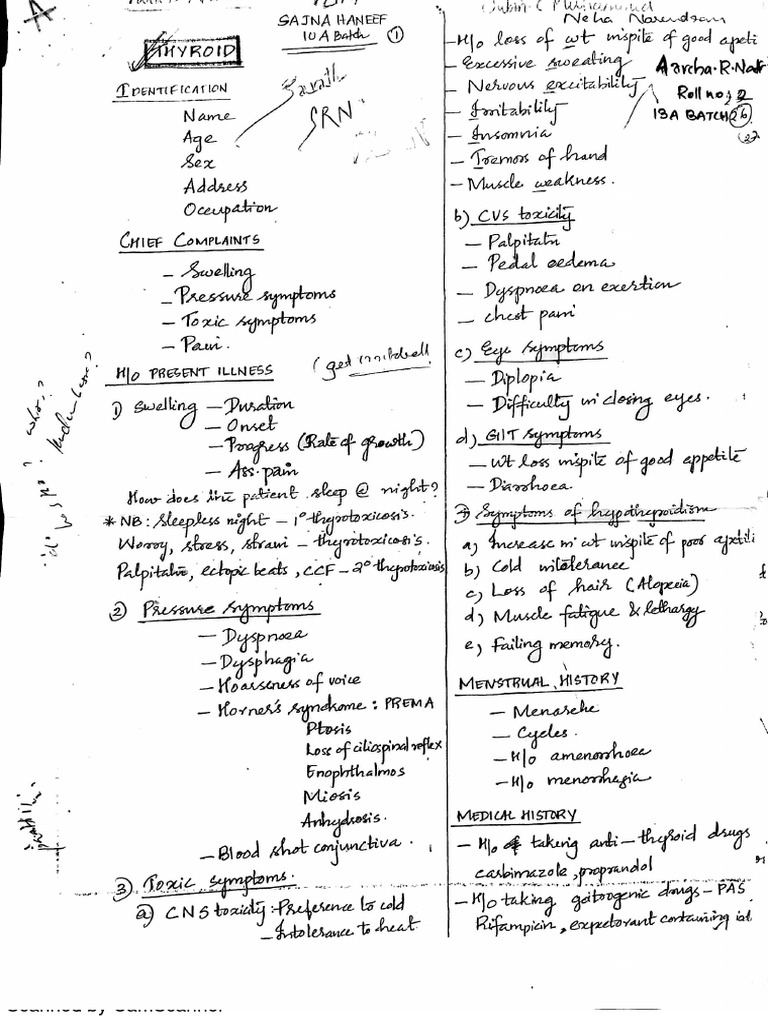 SAJNA HANEEF
10A Batch ①
THYROID
IDENTIFICATION
Name
Age
Sex
Address
Occupation
SRN
CHIEF COMPLAINTS
- Swelling
- Pressure symptoms
- Toxic symptoms
- Pain.
H/O PRESENT ILLNESS
1) Swelling - Duration
- Onset
- Progress (Rate of growth)
- Ass. pain
How does the patient sleep @ night?
* NB: Sleepless night - 1° thyrotoxicosis.
Worry, stress, strain - thyrotoxicosis.
Palpitatn, ectopic beats, CCF - 2° thyrotoxicosis
② Pressure symptoms
- Dyspnoea
- Dysphagia
- Hoarseness of voice
- Horner's syndrome : PREMA
Ptosis
Loss of ciliospinal reflex
Enophthalmos
Miosis
Anhydrosis.
- Blood shot conjunctiva.
③ Toxic symptoms.
a) CNS toxicity :- Preference to cold
- Intolerance to heat
Neha Narendran
- H/o loss of wt inspite of good apeti
- Excessive sweating
- Nervous excitability
- Irritability
- Insomnia
- Tremors of hand
- Muscle weakness.
Aarcha. R. Nair
Roll no: 2
13A BATCH 26
b) CVS toxicity
- Palpitatn
- Pedal oedema
- Dyspnoea on exertion
- chest pain
c) Eye symptoms
- Diplopia
- Difficulty in closing eyes.
d) GIT symptoms
- Wt loss inspite of good appetite
- Diarrhoea.
Symptoms of hypothyroidism
a) Increase in wt inspite of poor apetiti
b) Cold intolerance
c) Loss of hair (Alopecia)
d) Muscle fatigue & lethargy
e) Failing memory.
MENSTRUAL HISTORY
- Menarche
- Cycles.
- H/o amenorrhoea
- H/o menorrhagia
MEDICAL HISTORY
- H/o taking anti-thyroid drugs
carbimazole, propranolol
- H/o taking goitrogenic drugs - PAS
Rifampicin, expectorant containing iod
Scanned by CamScanner